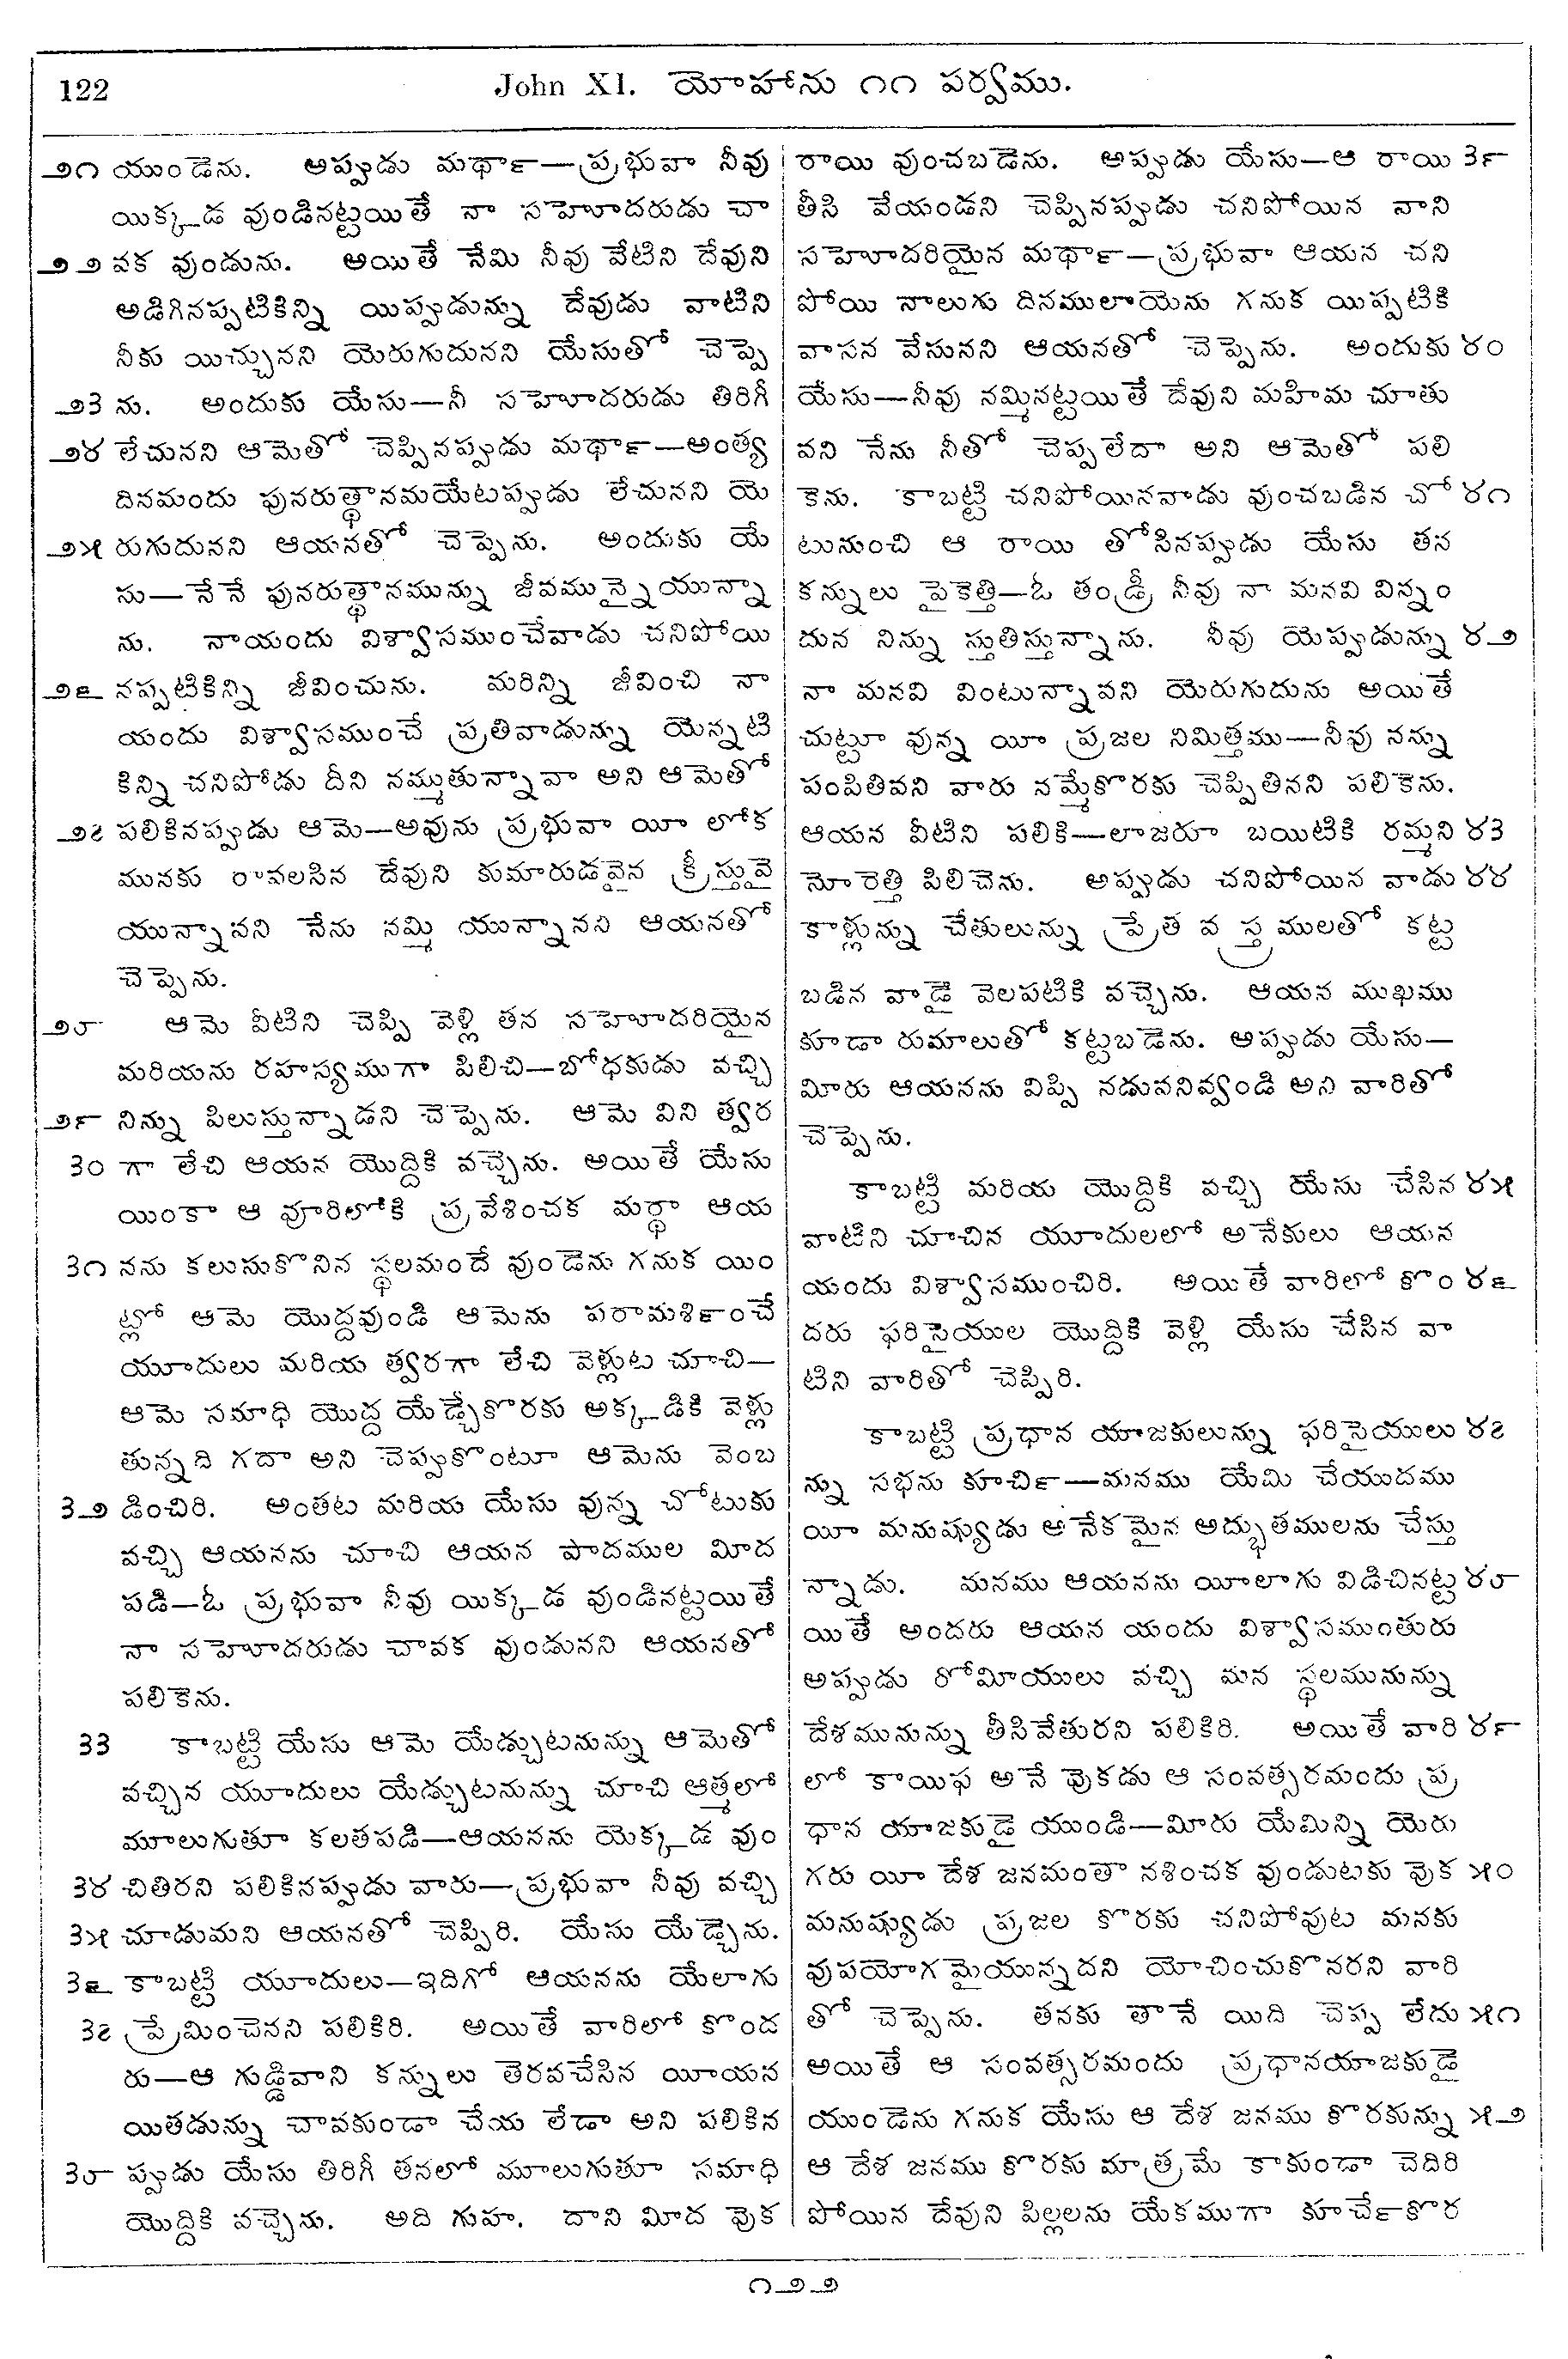 122
John XI. యోహాను ౧౧ పర్వము.
౨౧ యుండెను. అప్పుడు మథా౯—ప్రభువా నీవు
యిక్కడ వుండినట్టయితే నా సహెూదరుడు చా
౨౨ వక వుండును. అయితే నేమి నీవు వేటిని దేవుని
అడిగినప్పటికిన్ని యిప్పుడున్ను దేవుడు వాటిని
నీకు యిచ్చునని యెరుగుదునని యేసుతో చెప్పె
౨౩ ను. అందుకు యేసు—నీ సహెూదరుడు తిరిగీ
౨౪ లేచునని ఆమెతో చెప్పినప్పుడు మథా౯—అంత్య
దినమందు పునరుత్థానమయేటప్పుడు లేచునని యె
౨౫ రుగుదునని ఆయనతో చెప్పెను. అందుకు యే
సు—నేనే పునరుత్థానమున్ను జీవమున్నైయున్నా
ను. నాయందు విశ్వాసముంచేవాడు చనిపోయి
౨౬ నప్పటికిన్ని జీవించును. మరిన్ని జీవించి నా
యందు విశ్వాసముంచే ప్రతివాడున్ను యెన్నటి
కిన్ని చనిపోడు దీని నమ్ముతున్నావా అని ఆమెతో
౨౭ పలికినప్పుడు ఆమె—అవును ప్రభువా యీ లోక
మునకు రావలసిన దేవుని కుమారుడవైన క్రీస్తువై
యున్నానని నేను నమ్మి యున్నానని ఆయనతో
చెప్పెను.
౨౮ ఆమె వీటిని చెప్పి వెళ్లి తన సహెూదరియైన
మరియను రహస్యముగా పిలిచి—బోధకుడు వచ్చి
౨౯ నిన్ను పిలుస్తున్నాడని చెప్పెను. ఆమె విని త్వర
౩౦ గా లేచి ఆయన యొద్దికి వచ్చెను. అయితే యేసు
యింకా ఆ వూరిలోకి ప్రవేశించక మర్థా ఆయ
౩౧ నను కలుసుకొనిన స్థలమందే వుండెను గనుక యిం
ట్లో ఆమె యొద్దవుండి ఆమెను పరామశి౯ంచే
యూదులు మరియ త్వరగా లేచి వెళ్లుట చూచి—
ఆమె సమాధి యొద్ద యేడ్చేకొరకు అక్కడికి వెళ్లు
తున్నది గదా అని చెప్పుకొంటూ ఆమెను వెంబ
౩౨ డించిరి. అంతట మరియ యేసు వున్న చోటుకు
వచ్చి ఆయనను చూచి ఆయన పాదముల మీద
పడి—ఓ ప్రభువా నీవు యిక్కడ వుండినట్టయితే
నా సహెూదరుడు చావక వుండునని ఆయనతో
పలికెను.
౩౩ కాబట్టి యేసు ఆమె యేడ్చుటనున్ను ఆమెతో
వచ్చిన యూదులు యేడ్చుటనున్ను చూచి ఆత్మలో
మూలుగుతూ కలతపడి—ఆయనను యెక్కడ వుం
౩౪ చితిరని పలికినప్పుడు వారు—ప్రభువా నీవు వచ్చి
౩౫ చూడుమని ఆయనతో చెప్పిరి. యేసు యేడ్చెను.
౩౬ కాబట్టి యూదులు—ఇదిగో ఆయనను యేలాగు
౩౭ ప్రేమించెనని పలికిరి. అయితే వారిలో కొంద
రు—ఆ గుడ్డివాని కన్నులు తెరవచేసిన యీయన
యితడున్ను చావకుండా చేయ లేడా అని పలికిన
౩౮ ప్పుడు యేసు తిరిగీ తనలో మూలుగుతూ సమాధి
యొద్దికి వచ్చెను. అది గుహ. దాని మీద వుక
రాయి వుంచబడెను. అప్పుడు యేసు—ఆ రాయి ౩౯
తీసి వేయండని చెప్పినప్పుడు చనిపోయిన వాని
సహెూదరియైన మథా౯—ప్రభువా ఆయన చని
పోయి నాలుగు దినములాయెను గనుక యిప్పటికి
వాసన వేసునని ఆయనతో చెప్పెను. అందుకు ౪౦
యేసు—నీవు నమ్మినట్టయితే దేవుని మహిమ చూతు
వని నేను నీతో చెప్పలేదా అని ఆమెతో పలి
కెను. కాబట్టి చనిపోయినవాడు వుంచబడిన చో ౪౧
టునుంచి ఆ రాయి తోసినప్పుడు యేసు తన
కన్నులు పైకెత్తి—ఓ తండ్రీ నీవు నా మనవి విన్నం
దున నిన్ను స్తుతిస్తున్నాను. నీవు యెప్పుడున్ను ౪౨
నా మనవి వింటున్నావని యెరుగుదును అయితే
చుట్టూ వున్న యీ ప్రజల నిమిత్తము—నీవు నన్ను
పంపితివని వారు నమ్మేకొరకు చెప్పితినని పలికెను.
ఆయన వీటిని పలికి—లాజరూ బయిటికి రమ్మని ౪౩
నోరెత్తి పిలిచెను. అప్పుడు చనిపోయిన వాడు ౪౪
కాళ్లున్ను చేతులున్ను ప్రేత వస్త్రములతో కట్ట
బడిన వాడై వెలపటికి వచ్చెను. ఆయన ముఖము
కూడా రుమాలుతో కట్టబడెను. అప్పుడు యేసు—
మీరు ఆయనను విప్పి నడువనివ్వండి అని వారితో
చెప్పెను.
కాబట్టి మరియ యొద్దికి వచ్చి యేసు చేసిన ౪౫
వాటిని చూచిన యూదులలో అనేకులు ఆయన
యందు విశ్వాసముంచిరి. అయితే వారిలో కొం ౪౬
దరు ఫరిసైయుల యొద్దికి వెళ్లి యేసు చేసిన వా
టిని వారితో చెప్పిరి.
కాబట్టి ప్రధాన యాజకులున్ను ఫరిసైయులు ౪౭
న్ను సభను కూచి౯—మనము యేమి చేయుదము
యీ మనుష్యుడు అనేకమైన అద్భుతములను చేస్తు
న్నాడు. మనము ఆయనను యీలాగు విడిచినట్ట ౪౮
యితే అందరు ఆయన యందు విశ్వాసముంతురు
అప్పుడు రోమీయులు వచ్చి మన స్థలమునున్ను
దేశమునున్ను తీసివేతురని పలికిరి. అయితే వారి ౪౯
లో కాయిఫ అనే వుకడు ఆ సంవత్సరమందు ప్ర
ధాన యాజకుడై యుండి—మీరు యేమిన్ని యెరు
గరు యీ దేశ జనమంతా నశించక వుండుటకు వుక ౫౦
మనుష్యుడు ప్రజల కొరకు చనిపోవుట మనకు
వుపయోగమైయున్నదని యోచించుకొనరని వారి
తో చెప్పెను. తనకు తానే యిది చెప్ప లేదు ౫౧
అయితే ఆ సంవత్సరమందు ప్రధానయాజకుడై
యుండెను గనుక యేసు ఆ దేశ జనము కొరకున్ను ౫౨
ఆ దేశ జనము కొరకు మాత్రమే కాకుండా చెదిరి
పోయిన దేవుని పిల్లలను యేకముగా కూచే౯కొర
౧౨౨